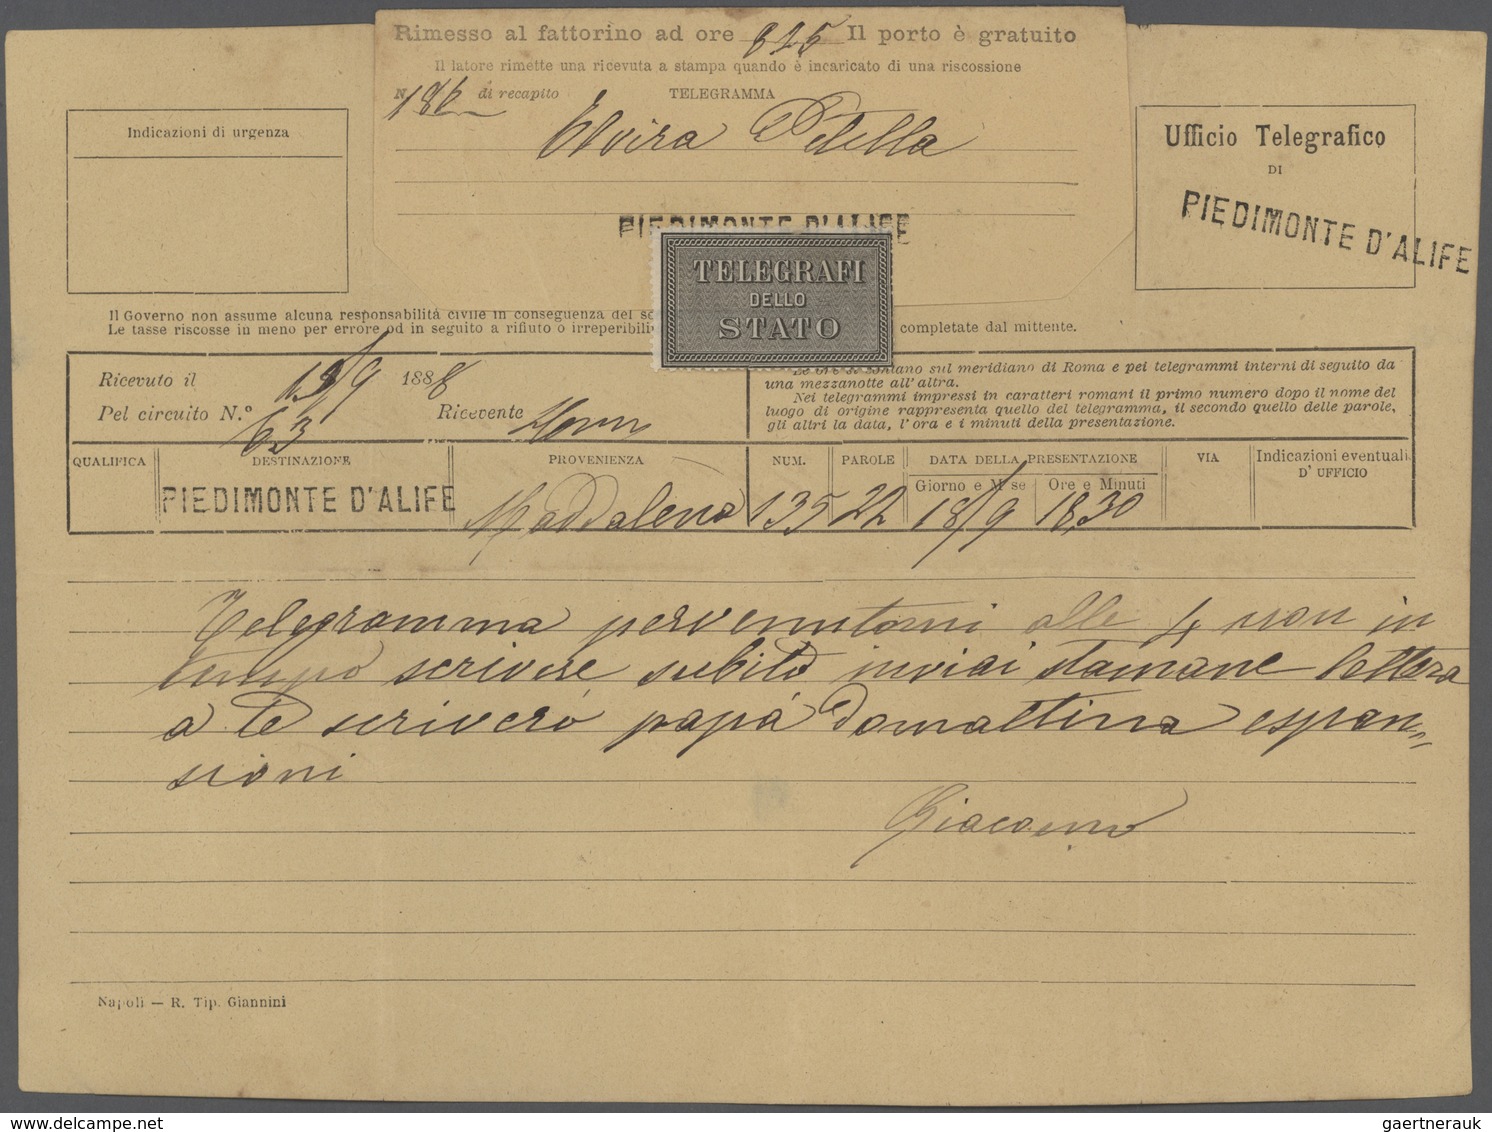 Rimesso al fattorino ad ore 825 Il porto è gratuito
Il latore rimette una ricevuta a stampa quando è incaricato di una riscossione
N 186 di recapito TELEGRAMMA
Elvira Petella
Indicazioni di urgenza
Ufficio Telegrafico
DI
PIEDIMONTE D'ALIFE
PIEDIMONTE D'ALIFE
TELEGRAFI
DELLO
STATO
Il Governo non assume alcuna responsabilità civile in conseguenza del
Le tasse riscosse in meno per errore od in seguito a rifiuto o irreperibili completate dal mittente.
Ricevuto il 19/9 1888
Pel circuito N.º 63 Ricevente
Le ore si contano sul meridiano di Roma e pei telegrammi interni di seguito da
una mezzanotte all'altra.
Nei telegrammi impressi in caratteri romani il primo numero dopo il nome del
luogo di origine rappresenta quello del telegramma, il secondo quello delle parole,
gli altri la data, l'ora e i minuti della presentazione.
QUALIFICA DESTINAZIONE PROVENIENZA NUM. PAROLE DATA DELLA PRESENTAZIONE VIA Indicazioni eventuali
D'UFFICIO
Giorno e Mese Ore e Minuti
PIEDIMONTE D'ALIFE Maddalena 135 22 18/9 18,30
Telegramma pervenutomi alle 4 non in
tempo scrivere subito inviai stamane lettera
a te scriverò papà domattina espan=
sioni
Giacomo
Napoli — R. Tip. Giannini
gaertnerauk.com